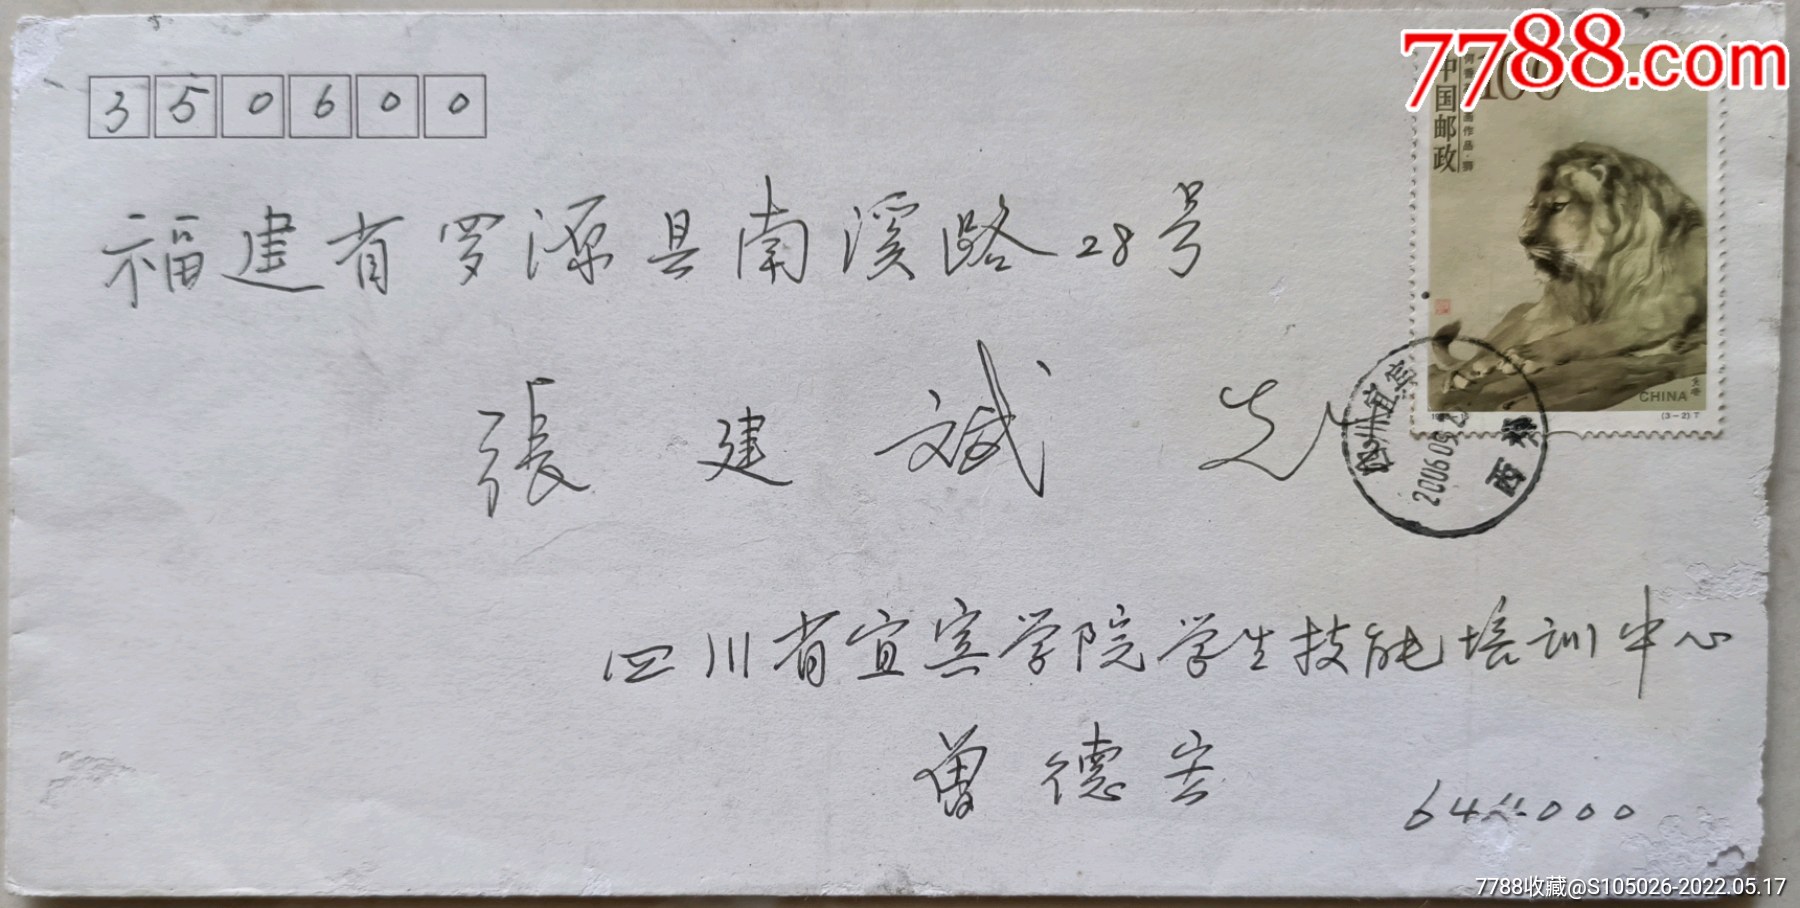 7788.com
350600
100
中国邮政
福建省罗源县南溪路28号
張建斌 先
CHINA
(3-2)T
四川宜宾
2006.09.2
西
四川省宜宾学院学生技能培训中心
曾德宏
644000
7788收藏@S105026-2022.05.17